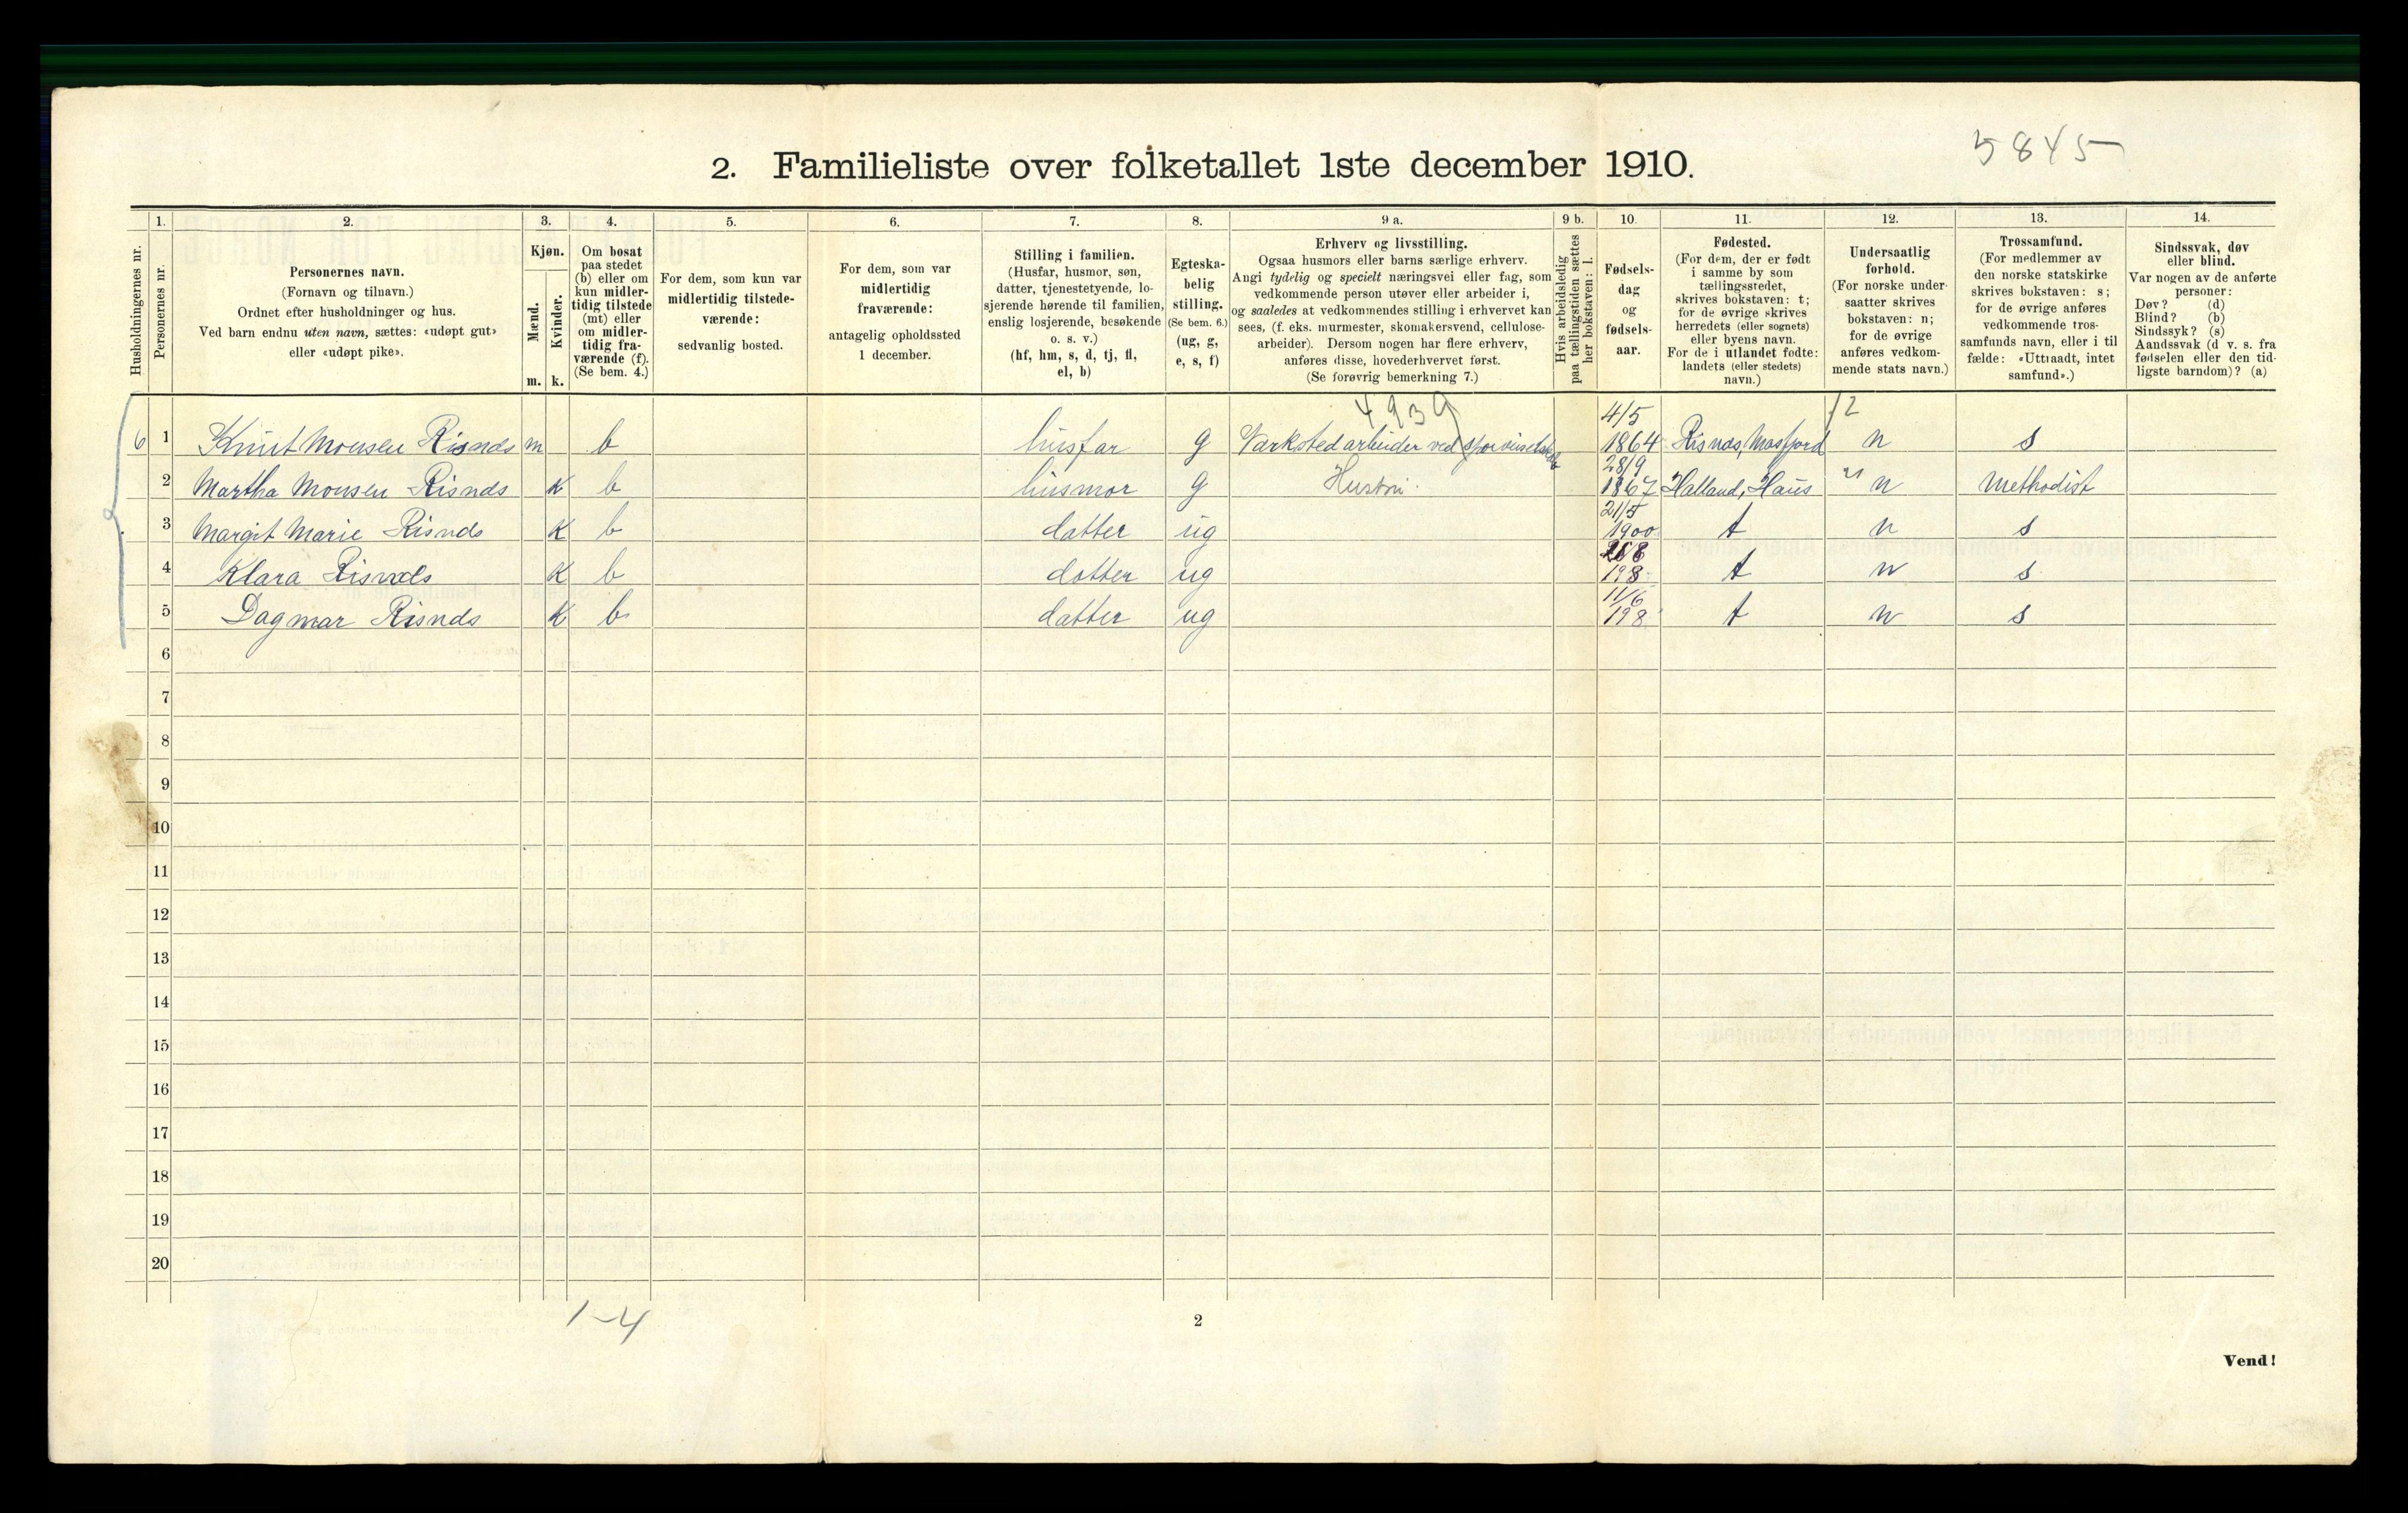 5845
2. Familieliste over folketallet 1ste december 1910.
1. 2. 3. 4. 5. 6. 7. 8. 9 a. 9 b. 10. 11. 12. 13. 14.
Husholdningernes nr.
Personernes nr.
Personernes navn.
(Fornavn og tilnavn.)
Ordnet efter husholdninger og hus.
Ved barn endnu uten navn, sættes: «udøpt gut»
eller «udøpt pike».
Kjøn.
Mænd.
Kvinder.
m. k.
Om bosat
paa stedet
(b) eller om
kun midler-
tidig tilstede
(mt) eller
om midler-
tidig fra-
værende (f).
(Se bem. 4.)
For dem, som kun var
midlertidig tilstede-
værende:
sedvanlig bosted.
For dem, som var
midlertidig
fraværende:
antagelig opholdssted
1 december.
Stilling i familien.
(Husfar, husmor, søn,
datter, tjenestetyende, lo-
sjerende hørende til familien,
enslig losjerende, besøkende
o. s. v.)
(hf, hm, s, d, tj, fl,
el, b)
Egteska-
belig
stilling.
(Se bem. 6.)
(ug, g,
e, s, f)
Erhverv og livsstilling.
Ogsaa husmors eller barns særlige erhverv.
Angi tydelig og specielt næringsvei eller fag, som
vedkommende person utøver eller arbeider i,
og saaledes at vedkommendes stilling i erhvervet kan
sees, (f. eks. murmester, skomakersvend, cellulose-
arbeider). Dersom nogen har flere erhverv,
anføres disse, hovederhvervet først.
(Se forøvrig bemerkning 7.)
Hvis arbeidsledig
paa tællingstiden sættes
her bokstaven: l.
Fødsels-
dag
og
fødsels-
aar.
Fødested.
(For dem, der er født
i samme by som
tællingsstedet,
skrives bokstaven: t;
for de øvrige skrives
herredets (eller sognets)
eller byens navn.
For de i utlandet fødte:
landets (eller stedets)
navn.)
Undersaatlig
forhold.
(For norske under-
saatter skrives
bokstaven: n;
for de øvrige
anføres vedkom-
mende stats navn.)
Trossamfund.
(For medlemmer av
den norske statskirke
skrives bokstaven: s;
for de øvrige anføres
vedkommende tros-
samfunds navn, eller i til
fælde: «Uttraadt, intet
samfund».)
Sindssvak, døv
eller blind.
Var nogen av de anførte
personer:
Døv? (d)
Blind? (b)
Sindssyk? (s)
Aandssvak (d v. s. fra
fødselen eller den tid-
ligste barndom)? (a)
4939 4/5 12
6 1 Knut Monsen Risnds m b husfar g Værksted arbeider ved 1864 Risnds, Masfjord n s
28/9
2 Martha Monsen Risnds K b husmor g Hustru. 1867 Halland, Haus n Methodist
21/5
3 Margit Marie Risnds K b datter ug 1900 t n s
4 Klara Risnds K b datter ug 198 t n s
11/6
5 Dagmar Risnds K b datter ug 198 t n s
6
7
8
9
10
11
12
13
14
15
16
17
18
19
20
1-4
2
Vend!